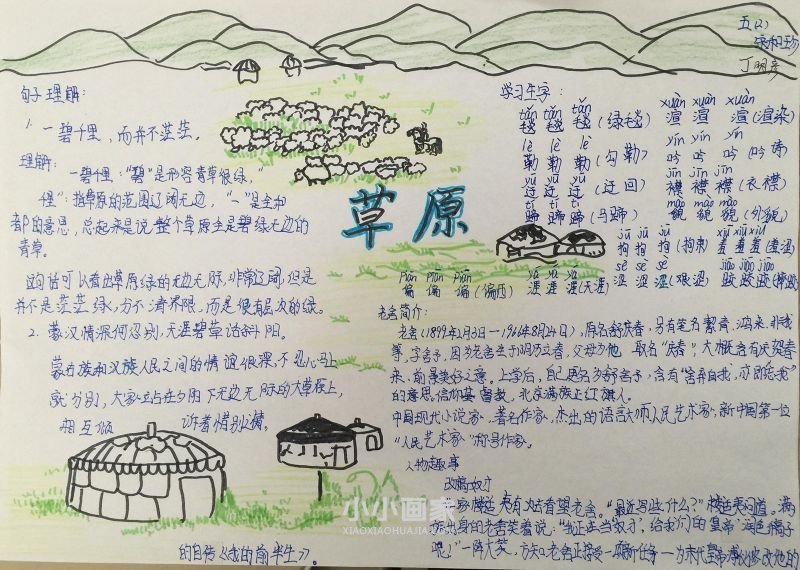 五(2)
丁明彦
句子理解:
1. 一碧千里,而并不茫茫。
理解:
一碧千里:“碧”是形容青草很绿,“
千里”:指草原的范围辽阔无边,“一”是全和
都的意思,总起来是说整个草原全是碧绿无边的
青草。
这句话可以看出草原绿的无边无际,非常辽阔,但是
并不是茫茫绿,分不清界限,而是很有层次的绿。
2. 蒙汉情深何忍别,天涯碧草话斜阳。
蒙古族和汉族人民之间的情谊很深,不忍心马上
就分别,大家站在夕阳下无边无际的大草原上,
相互倾 诉着惜别之情。
草原
学习生字:
tǎn tǎn tǎn
毯 毯 毯(绿毯)
xuàn xuàn xuàn
渲 渲 渲(渲染)
lè lè lè
勒 勒 勒(勾勒)
yín yín yín
吟 吟 吟(吟诗)
yū yū yū
迂 迂 迂(迂回)
jīn jīn jīn
襟 襟 襟(衣襟)
tí tí tí
蹄 蹄 蹄(马蹄)
mào mào mào
貌 貌 貌(外貌)
jū jū jū
拘 拘 拘(拘束)
xiū xiū xiū
羞 羞 羞(羞涩)
piān piān piān
偏 偏 偏
yá yá yá
涯 涯 涯(天涯)
sè sè sè
涩 涩 涩
jiāo jiāo jiāo
老舍简介:
老舍(1899年2月3日—1966年8月24日),原名舒庆春,另有笔名絜青、鸿来、非我
等,字舍予。因为老舍生于阴历立春,父母为他 取名“庆春”,大概含有庆贺春
来、前景美好之意。上学后,自己更名为舒舍予,含有“舍弃自我”,亦即“忘我”
的意思。信仰基督教,北京满族正红旗人。
中国现代小说家、著名作家,杰出的语言大师、人民艺术家,新中国第一位
“人民艺术家”称号作家。
人物趣事
楼适夷有次去看望老舍。“最近写些什么?”楼适夷问道。满
族出身的老舍笑着说:“我正在当奴才,给我们的皇帝润色稿子
呢!”一阵大笑,方知老舍正接受一项新任务—为末代皇帝溥仪修改他的
的自传《我的前半生》。
小小画家
XIAOXIAOHUAJIA.COM